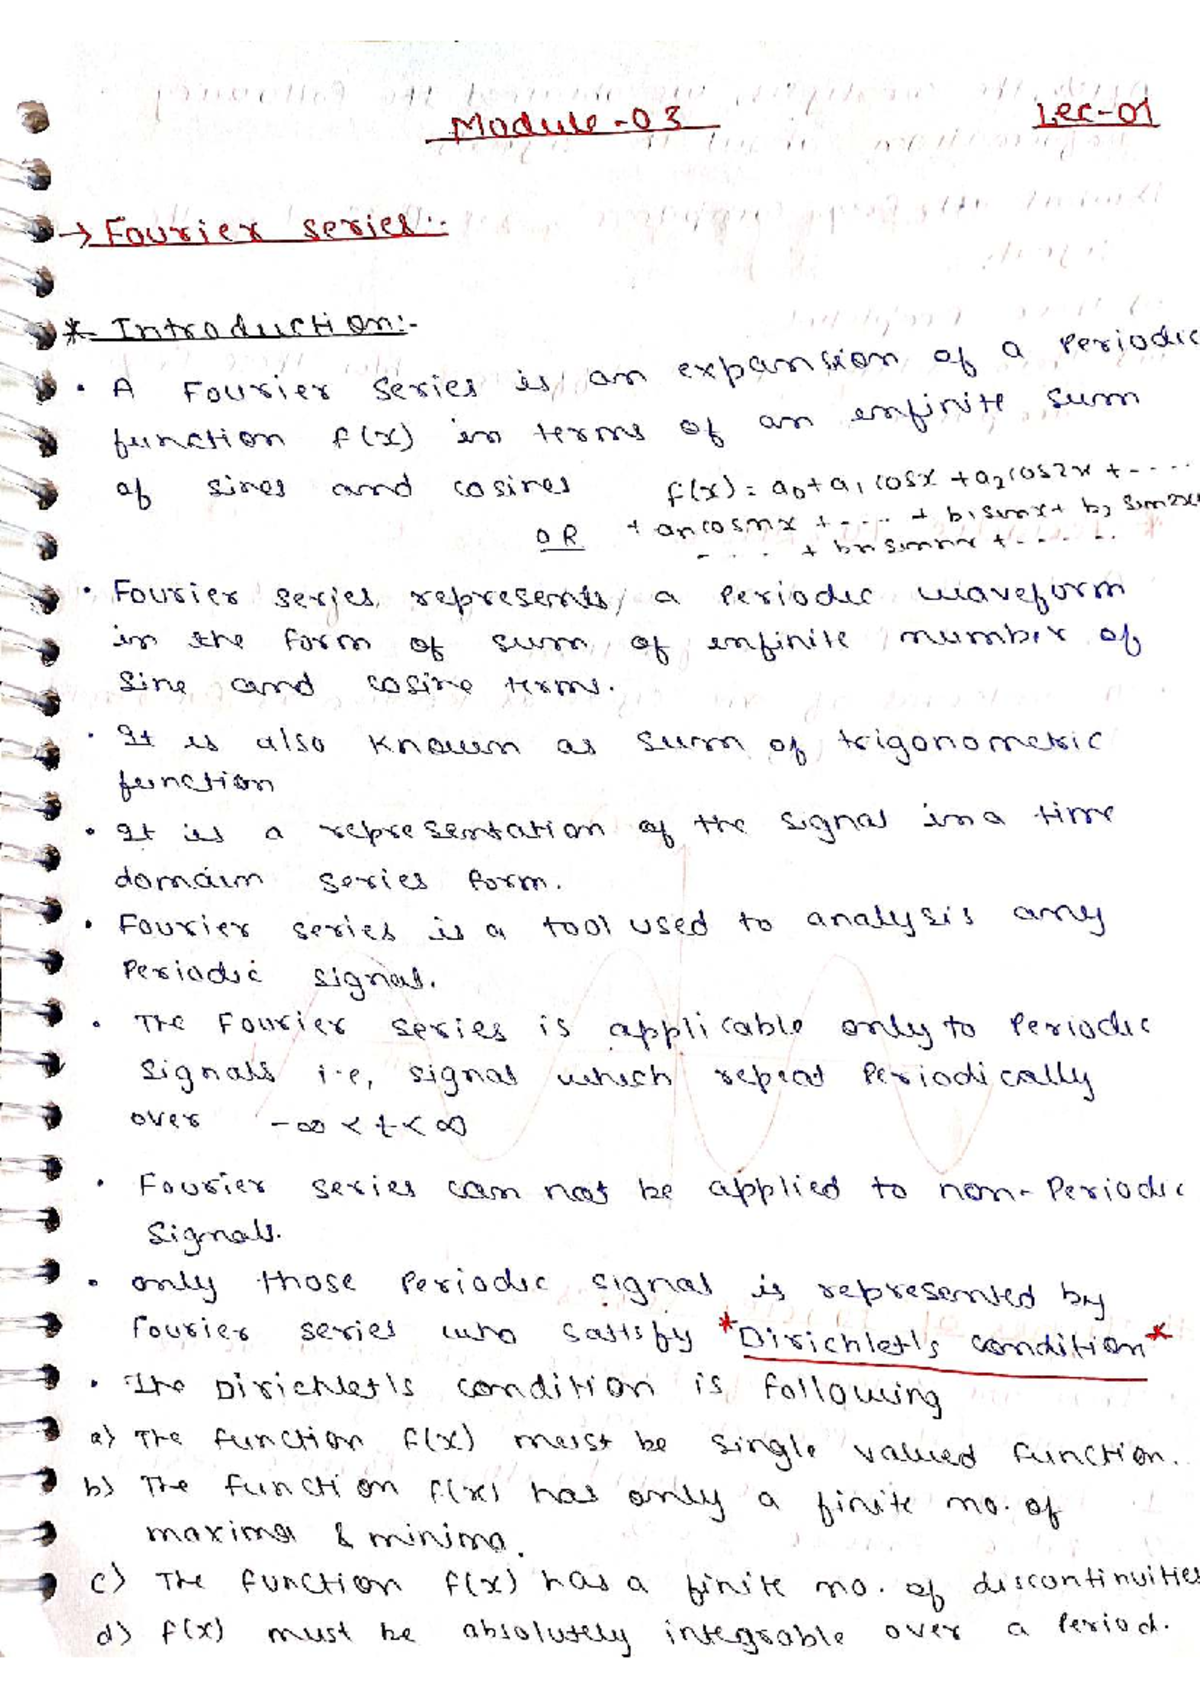 Module-03
Lec-01
→ Fourier series:-
* Introduction:-
• A Fourier series is an expansion of a Periodic
function f(x) in terms of an infinite sum
of sines and cosines f(x) = a0 + a1 cosx + a2 cos2x + - - - -
OR + an cosnx + - - - - + b1 sinx + b2 sin2x
- - - - - + bn sinnx + - - - - - -
• Fourier series represents a Periodic waveform
in the form of sum of infinite number of
Sine and cosine terms.
• It is also known as sum of trigonometric
function
• It is a representation of the signal in a time
domain series form.
• Fourier series is a tool used to analysis any
Periodic signal.
• The Fourier series is applicable only to Periodic
Signals i.e, signal which repeat Periodically
over -∞ < t < ∞
• Fourier series can not be applied to non-Periodic
Signals.
• only those Periodic signal is represented by
fourier series who satisfy *Dirichlet's condition*
• The Dirichlet's condition is following
a) The function f(x) must be single valued function.
b) The function f(x) has only a finite no. of
maxima & minima.
c) The function f(x) has a finite no. of discontinuities
d) f(x) must be absolutely integrable over a Period.